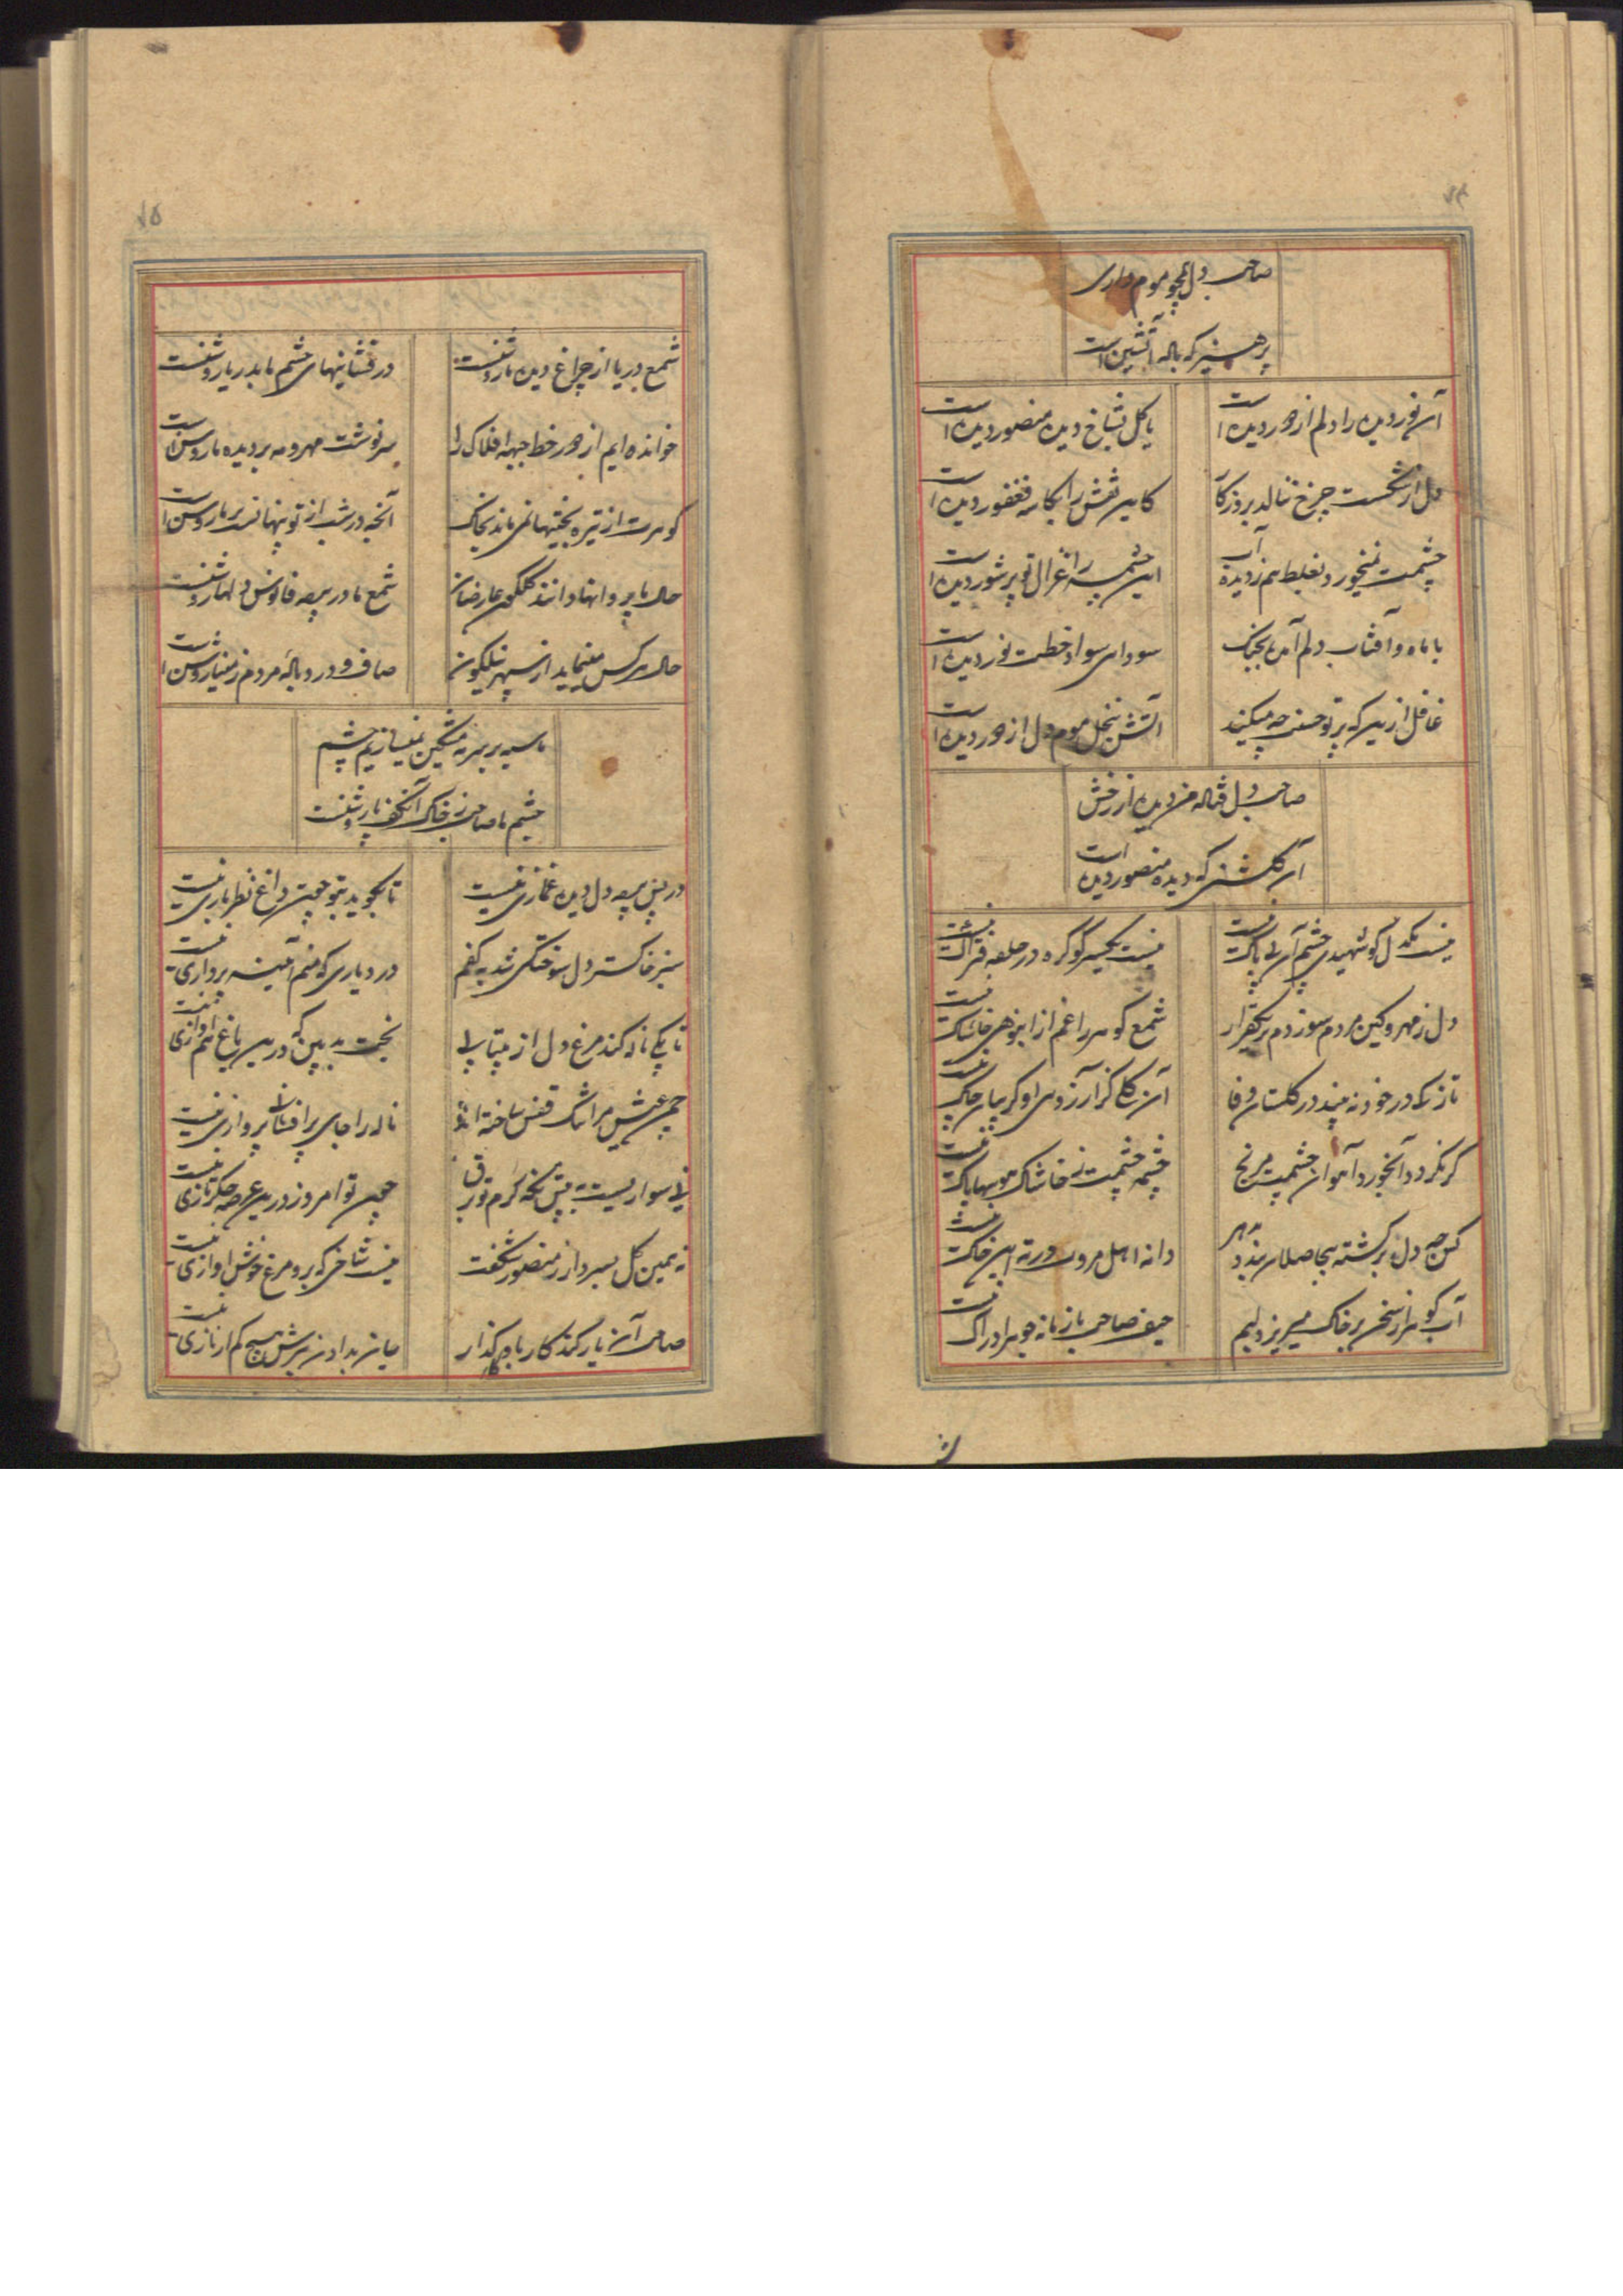 ۷۴
صاحب دل همچو موم داری
پرهیز که ناله آتشین است
آن نور دیده را دلم از دور دیده است
یا گل بشاخ دیده منصور دیده است
دل از شکست چرخ ننالد بروزکار
کاین نقش را بکاسه فغفور دیده است
چشمت نمیخورد بغلط هم ز دیده آب
این چشمه را غزال تو پر شور دیده است
با ماه و آفتاب دلم آمده بجنک
سودای سواد خطت نور دیده است
غافل ازین که پرتو حسنت چه میکند
آتش بنخل موم دل از دور دیده است
صاحب دل فتاله من دیده از رخش
آن گلشنی که دیده منصور دیده است
نیست یکدل کو شهیدی چشم آن بی باک نیست
نیست یکسر کو گره در حلقه فتراک نیست
دل ز مهر و کین مردم سوزدم بر یکقرار
شمع کوهر را غم از انبوهی خاشاک نیست
تازکی در خود نه بیند در کلستان وفا
آن گلی کز آرزوی او کریبان چاک نیست
کر نکردد آبخورد آهوان چشمت مرنج
چشمه چشمت ز خاشاک موسها پاک نیست
کس چه دل بر کشته بیحاصلان بندد مهر
دانه اهل مروت در ته این خاک نیست
آب کوهر از سخن بر خاک میریزد لیم
حیف صاحب با زمانه جوهر ادراک نیست
۷۵
شمع دریا از چراغ دیده ما روشنست
در فشانیهای چشم ما بدریا روشنست
خوانده ایم از دور خط جبهه افلاک را
سرنوشت مهر و مه بر دیده ما روشن است
کوهرت از تیره بختیها نمی ماند بخاک
آنچه در شب از تو پنهانست بر ما روشن است
حال ما پروانها دانند گلگون عارضان
شمع ما در پرده فانوس دلها روشنست
حال هر کس مینماید از سپهر نیلکون
صاف و درد باله مردم ز مینا روشن است
ما سیه بر سرمه مشکین نمیسازیم چشم
چشم ما صاحب ز خاک آن کف پا روشنست
در پس پرده دل دیده غمازی نیست
تا بکوید بتو چون داغ نظر بازی نیست
سبز خاکستر دل سوختکی شد به کفم
در دیاری که منم آینه پردازی نیست
تا بکی ناله کند مرغ دل از بیتابی
بخت بد بین که درین باغ هم آوازی نیست
چمن عیش مرا تنک قفس ساخته اند
ناله را جای پر افشانی پروازی نیست
نی سواریست به پیش نکه کرم تو برق
چون تو امروز درین عرصه جکرتازی نیست
نه همین گل بسر دار ز منصور شکفت
نیست شاخی که برو مرغ خوش اوازی نیست
صاحب آن یار کند کار بما وا گذار
جان بدادن برش هیچ کم از نازی نیست